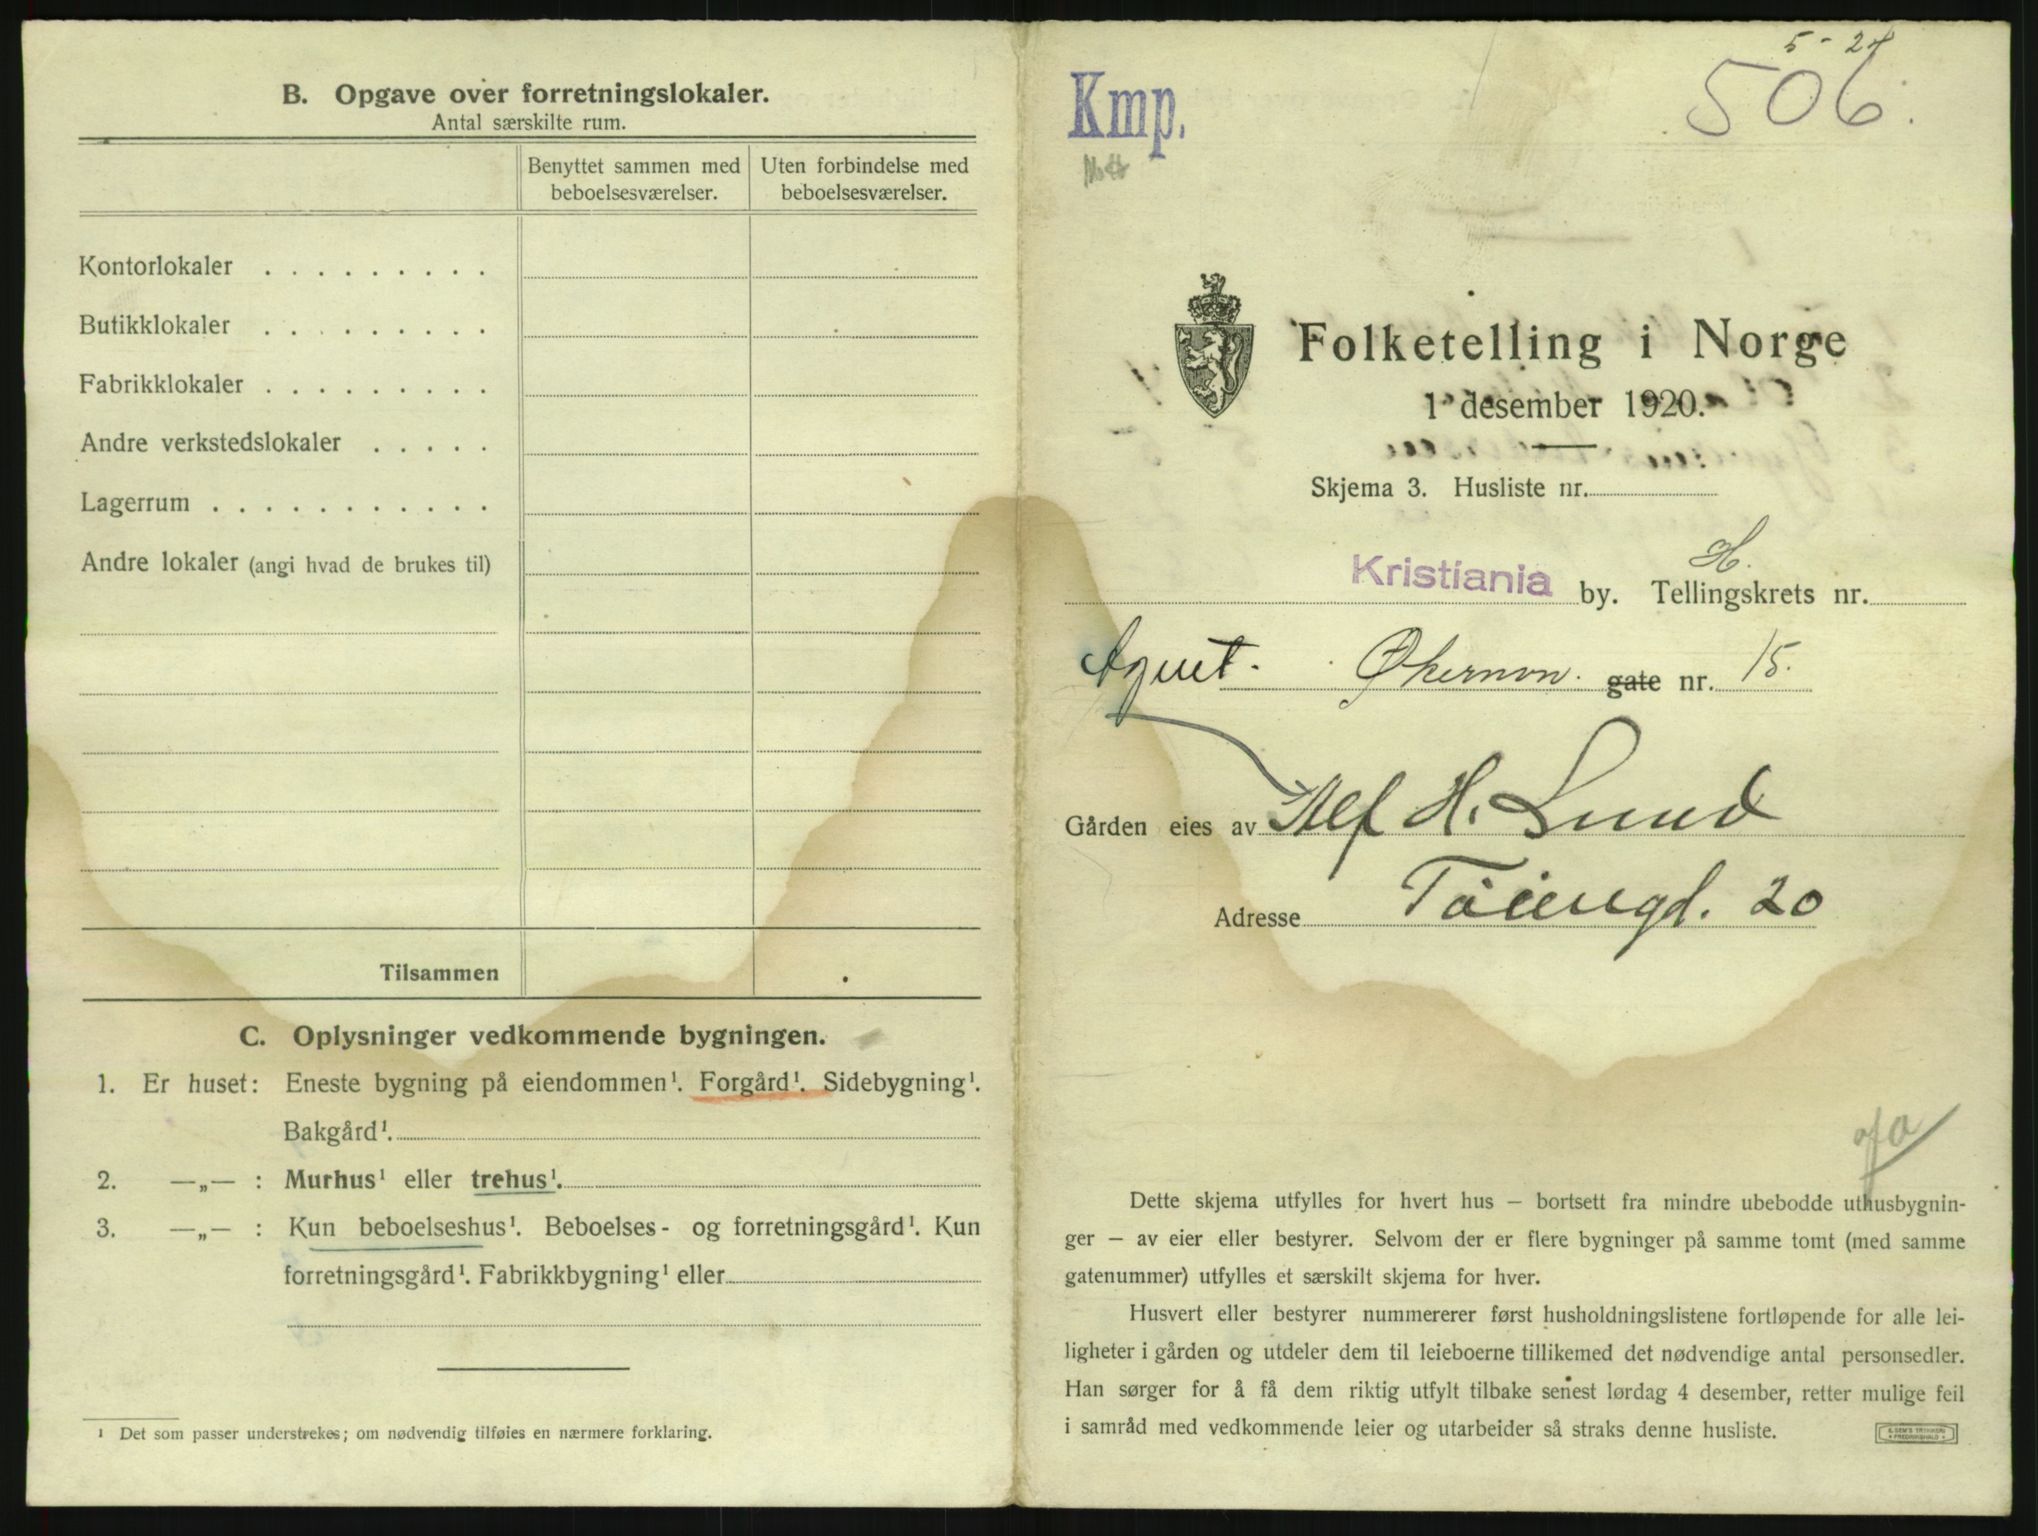 B. Opgave over forretningslokaler.
Antal særskilte rum.
Benyttet sammen med beboelsesværelser.
Uten forbindelse med beboelsesværelser.
Kontorlokaler . . . . . . . . .
Butikklokaler . . . . . . . . .
Fabrikklokaler . . . . . . . . .
Andre verkstedslokaler . . . . .
Lagerrum . . . . . . . . . . .
Andre lokaler (angi hvad de brukes til)
Tilsammen
C. Oplysninger vedkommende bygningen.
1. Er huset: Eneste bygning på eiendommen¹. Forgård¹. Sidebygning¹.
Bakgård¹.
2. —„— : Murhus¹ eller trehus¹.
3. —„— : Kun beboelseshus¹. Beboelses- og forretningsgård¹. Kun
forretningsgård¹. Fabrikkbygning¹ eller
¹ Det som passer understrekes; om nødvendig tilføies en nærmere forklaring.
5-24
506.
Kmp.
Folketelling i Norge
1 desember 1920.
Skjema 3. Husliste nr.
H.
Kristiania by. Tellingskrets nr.
Økernvn. gate nr. 15.
Gården eies av Alf H. Lund
Adresse Tøiengd. 20
Dette skjema utfylles for hvert hus – bortsett fra mindre ubebodde uthusbygnin-
ger – av eier eller bestyrer. Selvom der er flere bygninger på samme tomt (med samme
gatenummer) utfylles et særskilt skjema for hver.
Husvert eller bestyrer nummererer først husholdningslistene fortløpende for alle lei-
ligheter i gården og utdeler dem til leieboerne tillikemed det nødvendige antal personsedler.
Han sørger for å få dem riktig utfylt tilbake senest lørdag 4 desember, retter mulige feil
i samråd med vedkommende leier og utarbeider så straks denne husliste.